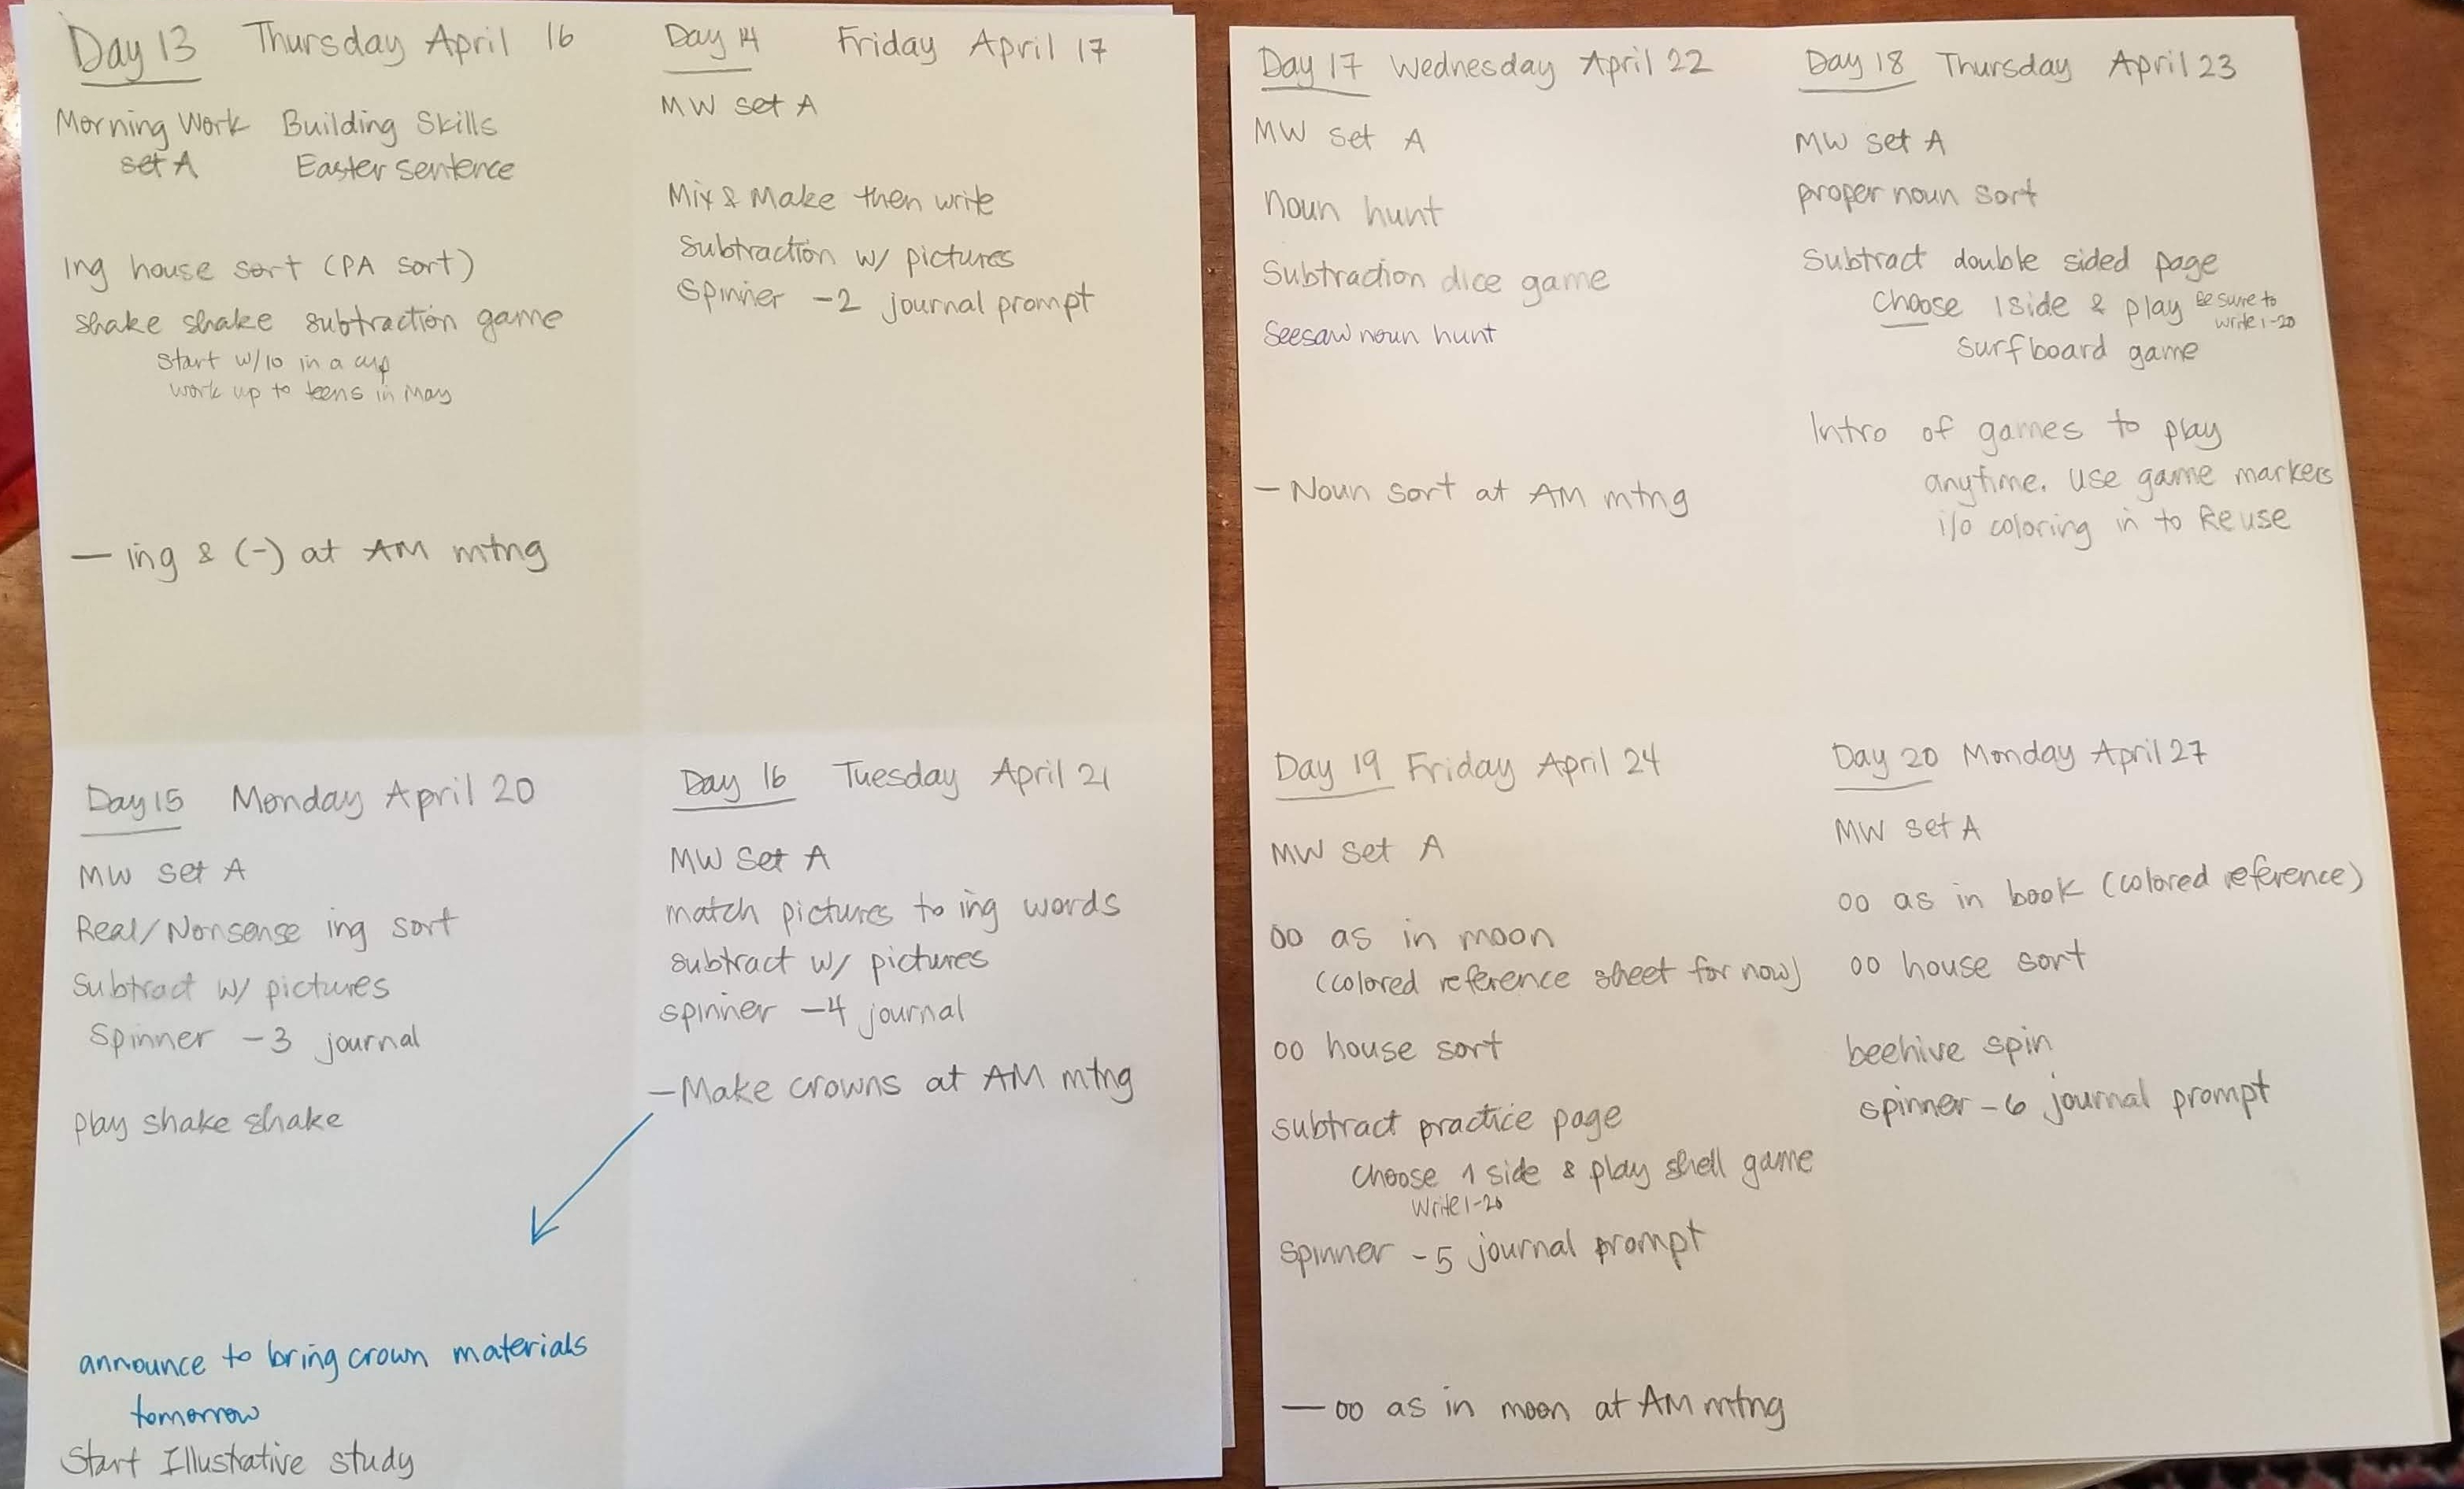 Day 13 Thursday April 16
Morning Work Building Skills
set A Easter sentence
Ing house sort (PA sort)
shake shake subtraction game
start w/10 in a cup
work up to teens in May
— ing & (-) at AM mtng
Day 14 Friday April 17
MW set A
Mix & Make then write
subtraction w/ pictures
spinner -2 journal prompt
Day 15 Monday April 20
MW set A
Real/Nonsense ing sort
Subtract w/ pictures
Spinner -3 journal
play shake shake
announce to bring crown materials
tomorrow
Start Illustrative study
Day 16 Tuesday April 21
MW Set A
match pictures to ing words
subtract w/ pictures
spinner -4 journal
-Make crowns at AM mtng
Day 17 Wednesday April 22
MW set A
noun hunt
Subtraction dice game
Seesaw noun hunt
- Noun sort at AM mtng
Day 18 Thursday April 23
MW set A
proper noun sort
Subtract double sided page
choose 1 side & play be sure to
write 1-20
surfboard game
Intro of games to play
anytime. Use game markers
i/o coloring in to Reuse
Day 19 Friday April 24
MW set A
oo as in moon
(colored reference sheet for now)
oo house sort
subtract practice page
choose 1 side & play shell game
write 1-20
spinner -5 journal prompt
— oo as in moon at AM mtng
Day 20 Monday April 27
MW set A
oo as in book (colored reference)
oo house sort
beehive spin
spinner -6 journal prompt